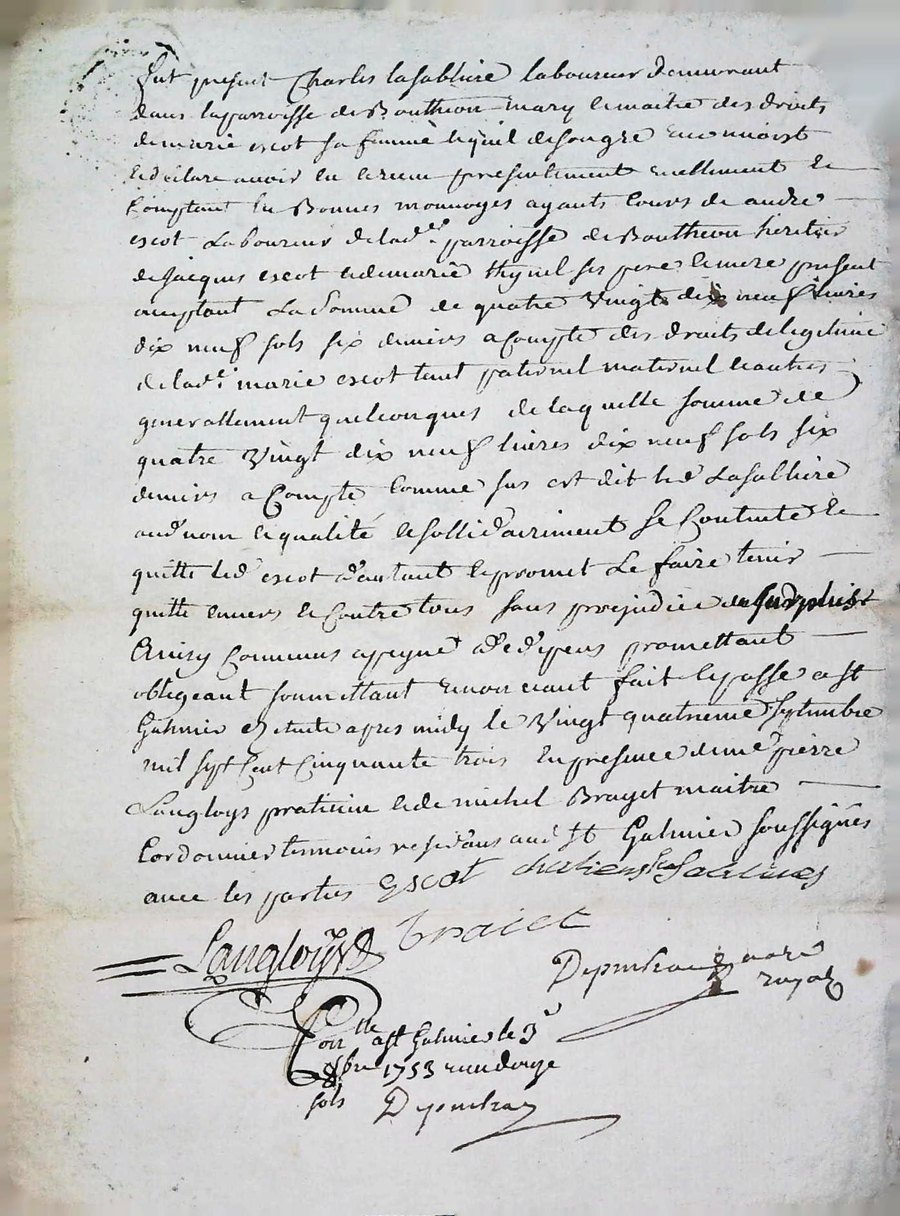 fut present Charles lasabliere laboureur demeurant
dans la parroisse de Bouthéon mary et maitre des droits
de marie escot sa femme lequel de son gre reconnoist
et déclare avoir eu et receu presentement reellement et
comptant en Bonnes monnoyes ayants cours de andre
escot Laboureur de lad.e parroisse de Bouthéon heritier
de Jacques escot et de marie thynel ses pere et mere present
acceptant La somme de quatre vingt dix neuf livres
dix neuf sols six deniers a compte des droits de legitime
de lad.e marie escot tant paternel maternel et autres
generallement quelconques de laquelle somme de
quatre vingt dix neuf livres dix neuf sols six
deniers a compte comme sus est dit led Lasabliere
aud nom et qualité et sollidairement se contente et
quitte led escot d'autant et promet Le faire tenir
quitte envers et contre tous sans prejudice du surplus
Ainsy convenus a peyne de d'epens promettant
obligeant soumettant renonceant fait et passe a st
Galmier estude apres midy le vingt quatrieme septembre
mil sept cent cinquante trois En presence de me pierre
Langloys praticien et de michel Brayet maitre
Cordonnier temoins residans aud st Galmier soussignés
avec les parties escot charles La Sablieres
Langloys braiet
not.re
royal
Con.lle a st Galmier le 3.e
8bre 1753 recu douze
sols